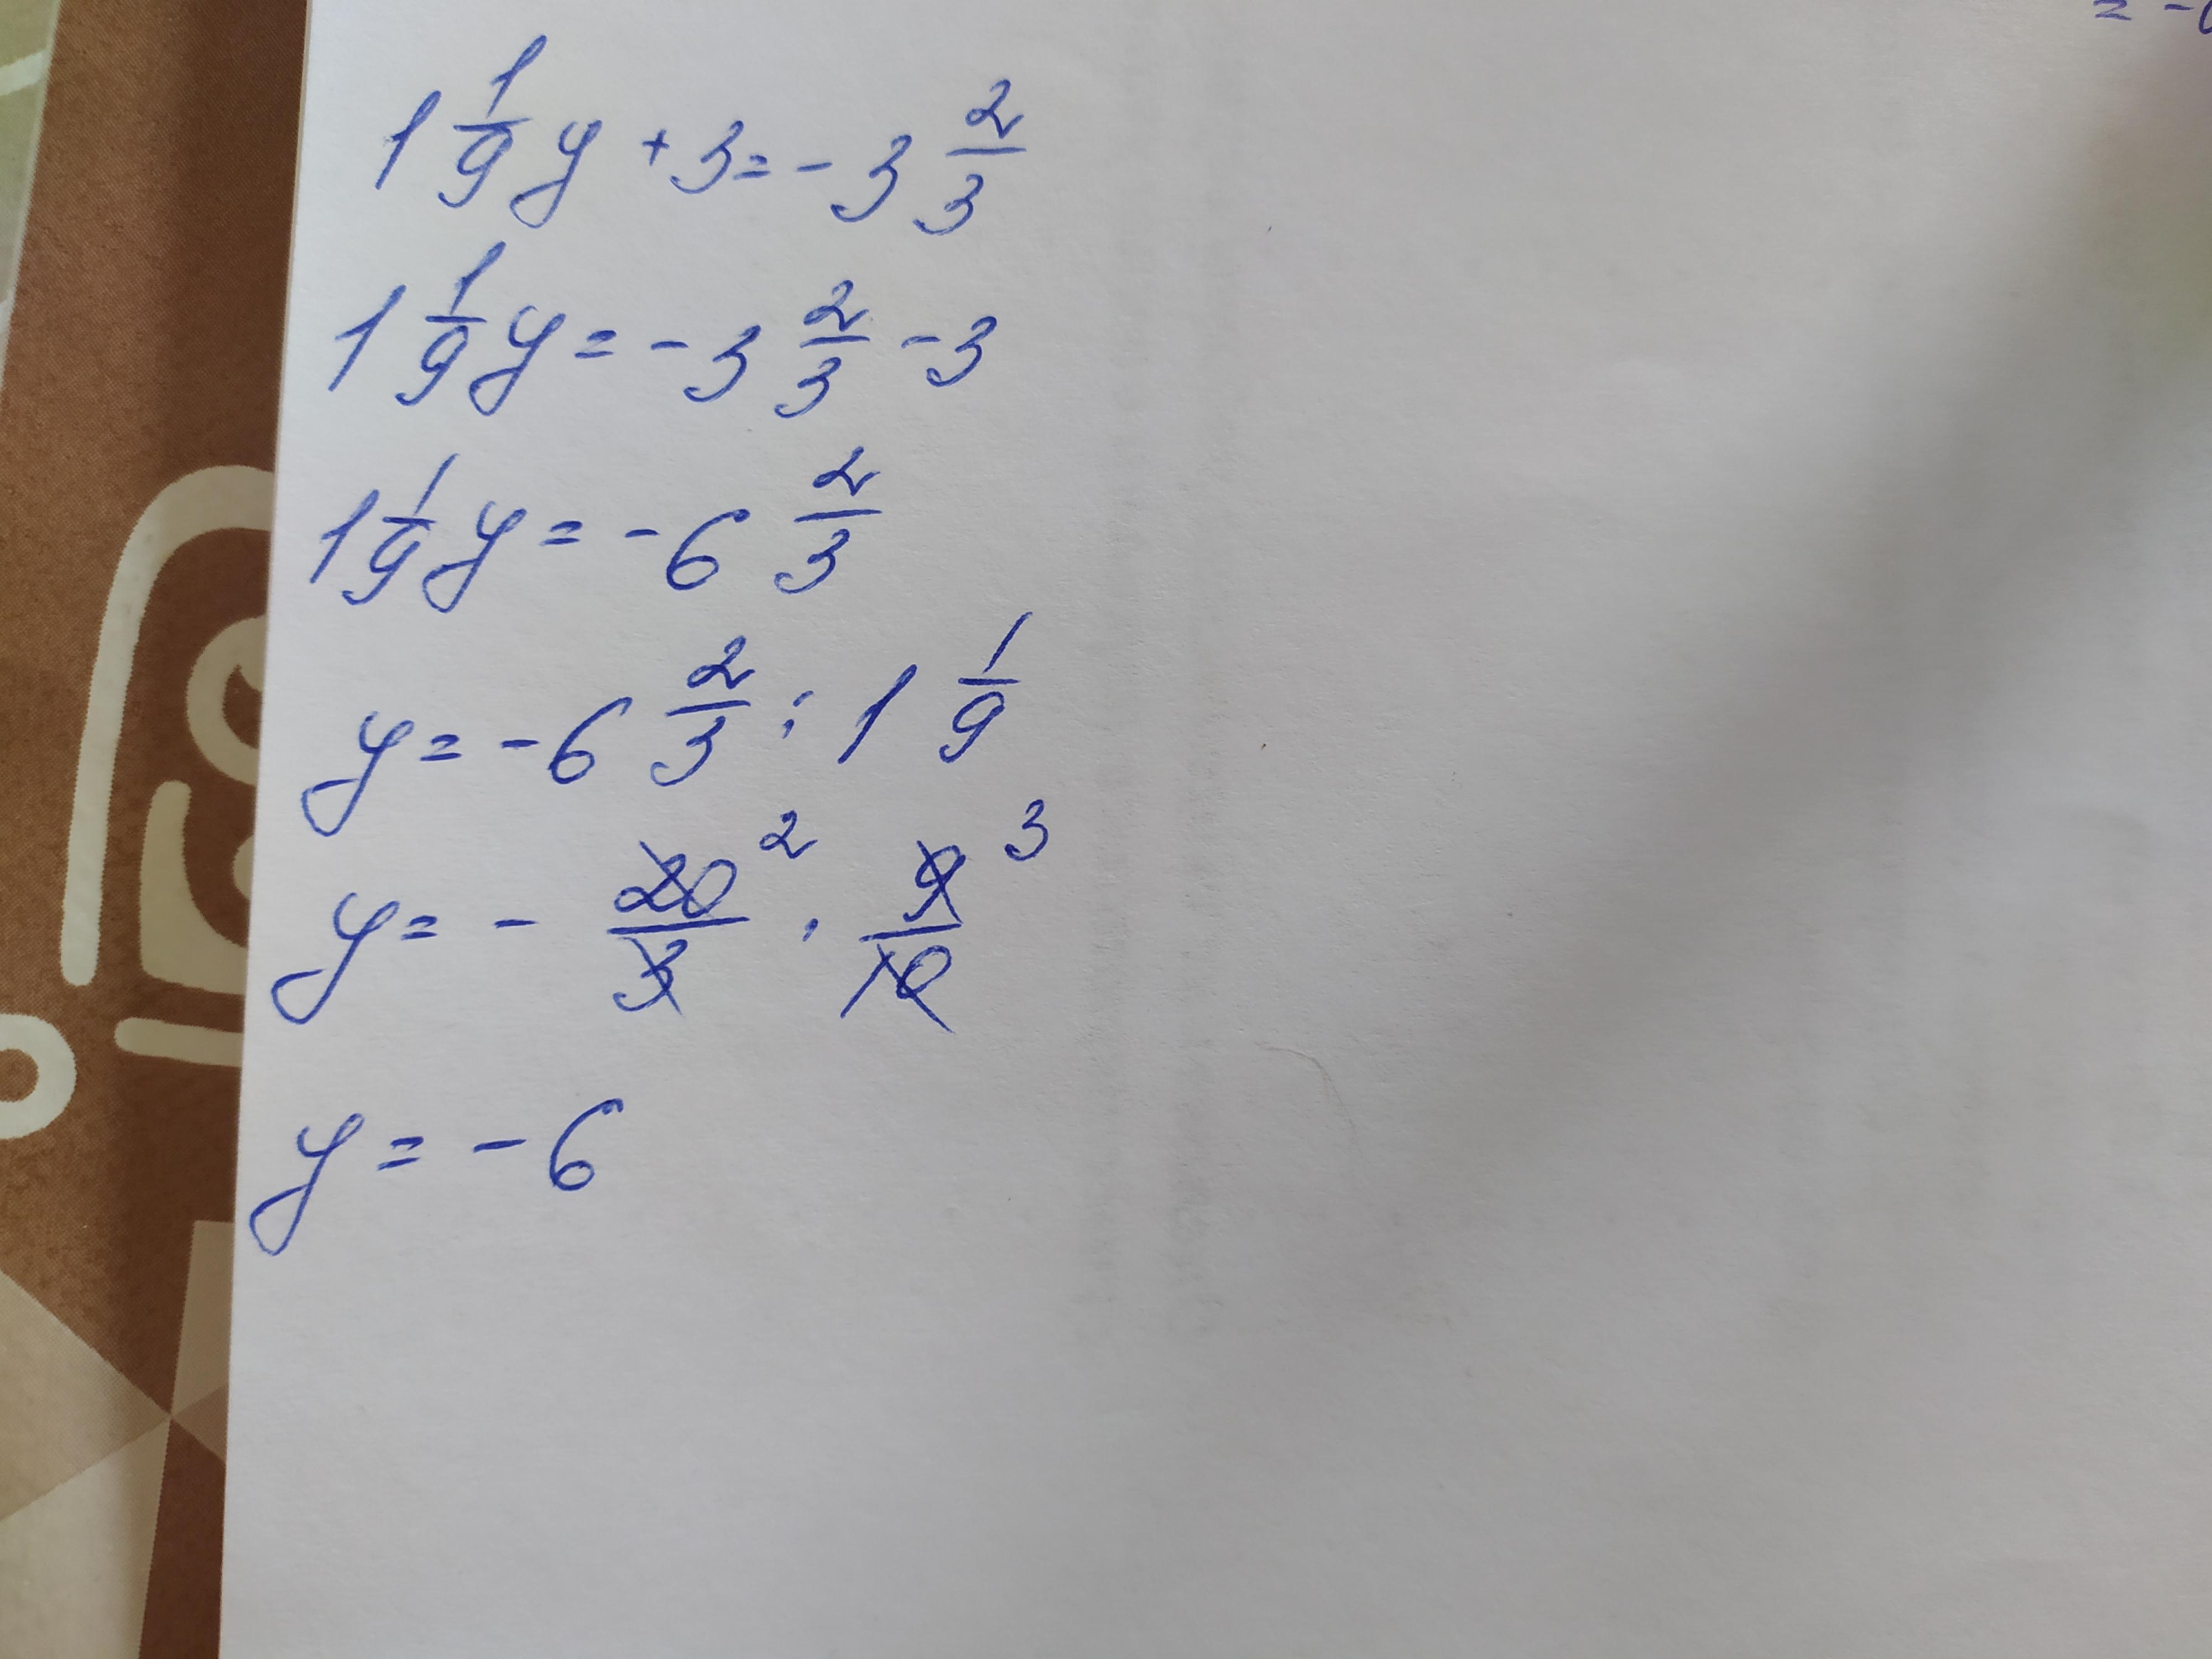 = -6
1 1/9 y + 3 = - 3 2/3
1 1/9 y = - 3 2/3 - 3
1 1/9 y = - 6 2/3
y = - 6 2/3 : 1 1/9
y = - 20/3 ² · 9/10 ³
y = - 6